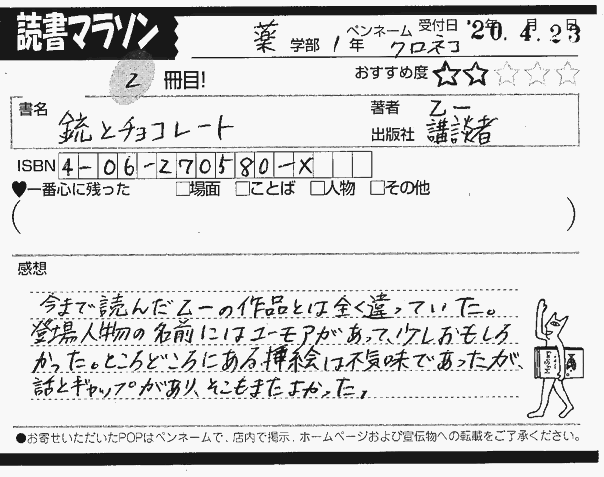 読書マラソン
薬 学部 1 年 ペンネーム クロネコ 受付日 '20年.4月.23日
2 冊目! おすすめ度 ★★☆☆☆
書名 銃とチョコレート 著者 乙一
出版社 講談者
ISBN 4-06-270580-X
♥一番心に残った □場面 □ことば □人物 □その他
( )
感想
今まで読んだ乙一の作品とは全く違っていた。
登場人物の名前にはユーモアがあって、少しおもしろ
かった。ところどころにある挿絵は不気味であったが、
話とギャップがあり、そこもまたよかった。
●お寄せいただいたPOPはペンネームで、店内で掲示、ホームページおよび宣伝物への転載をご了承ください。